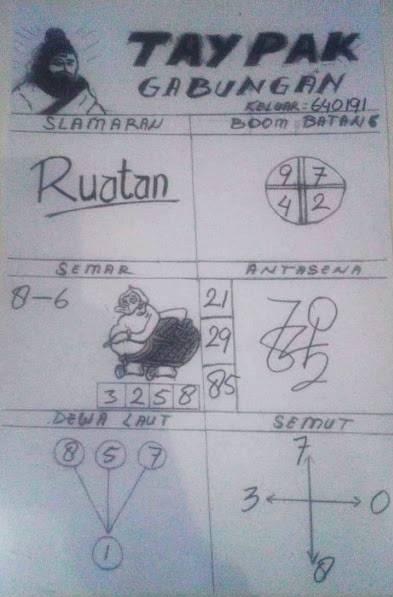 TAYPAK
GABUNGAN
KELUAR: 640191
SLAMARAN
BOOM BATANG
Ruatan
9 7
4 2
SEMAR
ANTASENA
8-6
21
29
85
3 2 5 8
DEWA LAUT
SEMUT
8 5 7
1
7
3 0
8